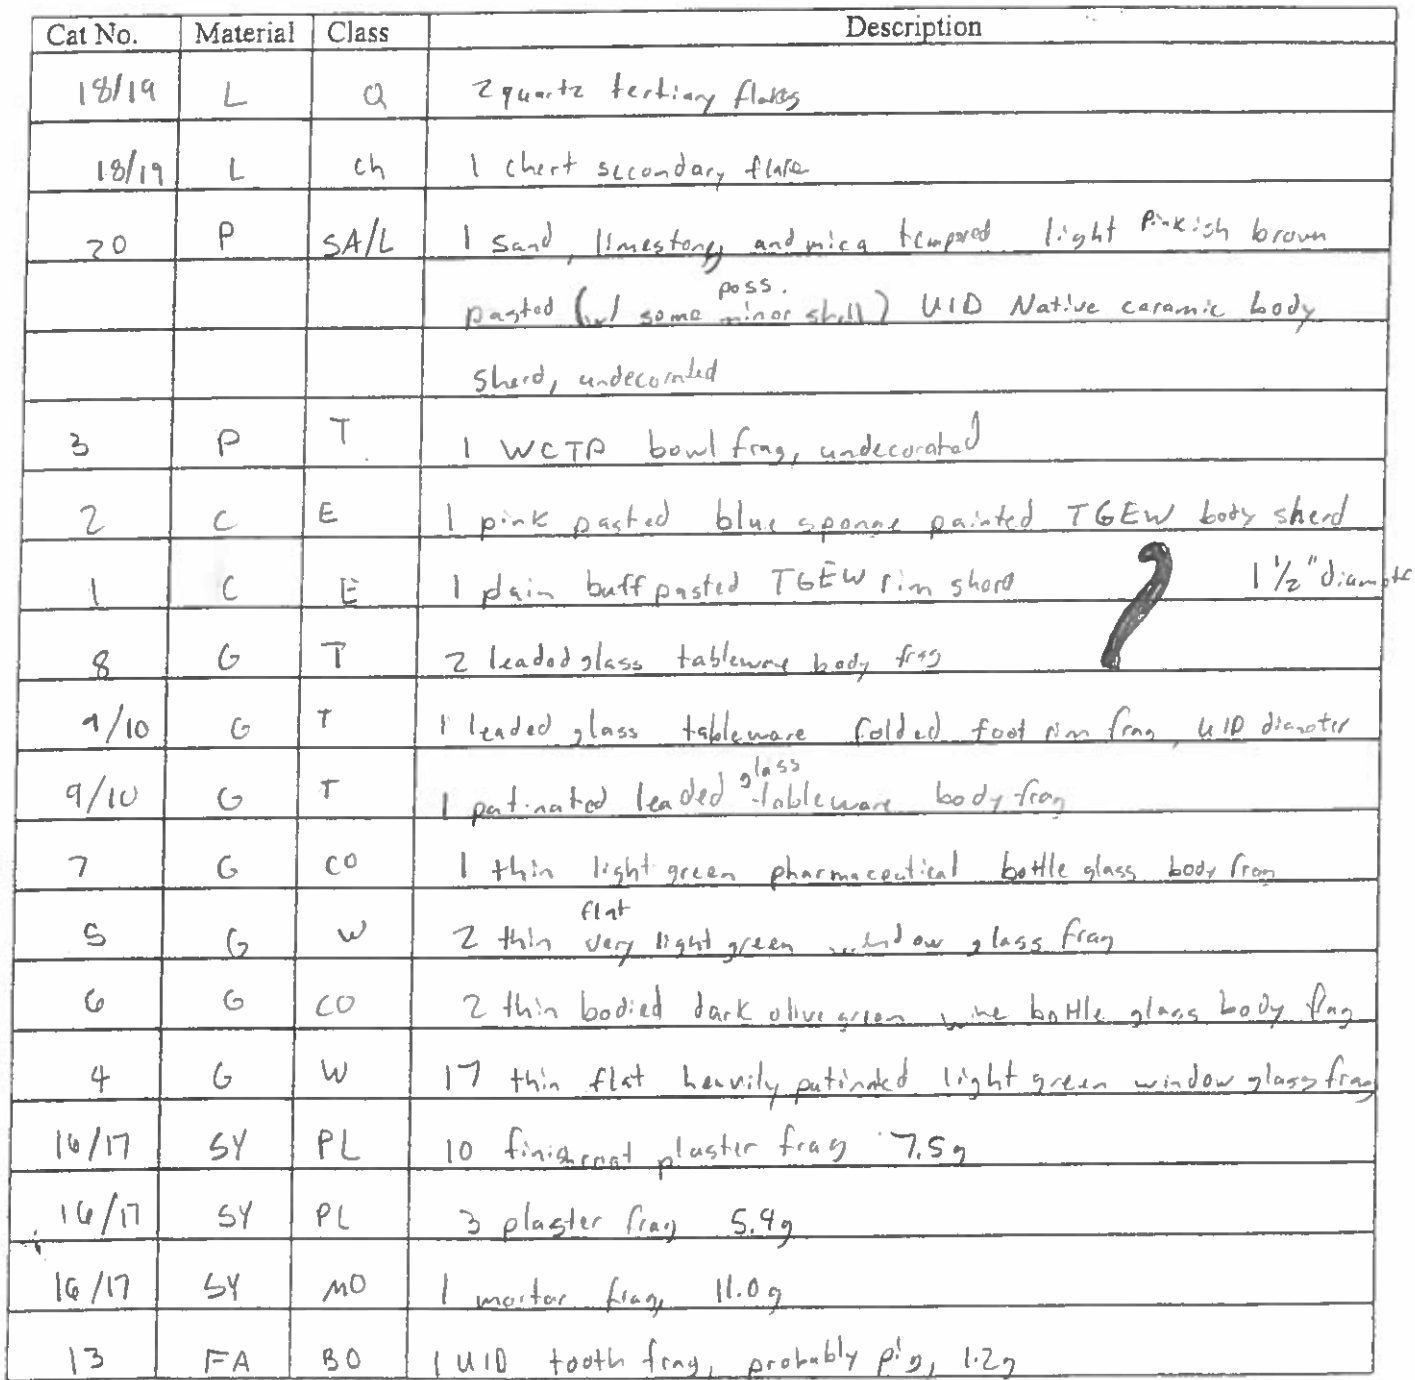 Cat No. Material Class Description
18/19 L Q 2 quartz tertiary flakes
18/19 L Ch 1 chert secondary flake
20 P SA/L 1 sand, limestone, and mica tempered light pinkish brown
pasted (w/ some poss. minor shell) UID Native ceramic body
sherd, undecorated
3 P T 1 WCTP bowl frag, undecorated
2 C E 1 pink pasted blue sponge painted TGEW body sherd
1 C E 1 plain buff pasted TGEW rim sherd 1 1/2" diameter
8 G T 2 leaded glass tableware body frag
9/10 G T 1 leaded glass tableware folded foot rim frag, UID diameter
9/10 G T 1 patinated leaded glass tableware body frag
7 G CO 1 thin light green pharmaceutical bottle glass body frag
5 G W 2 thin flat very light green window glass frag
6 G CO 2 thin bodied dark olive green wine bottle glass body frag
4 G W 17 thin flat heavily patinated light green window glass frag
16/17 SY PL 10 finishcoat plaster frag 7.5g
16/17 SY PL 3 plaster frag 5.4g
16/17 SY MO 1 mortar frag, 11.0g
13 FA BO 1 UID tooth frag, probably pig, 1.2g